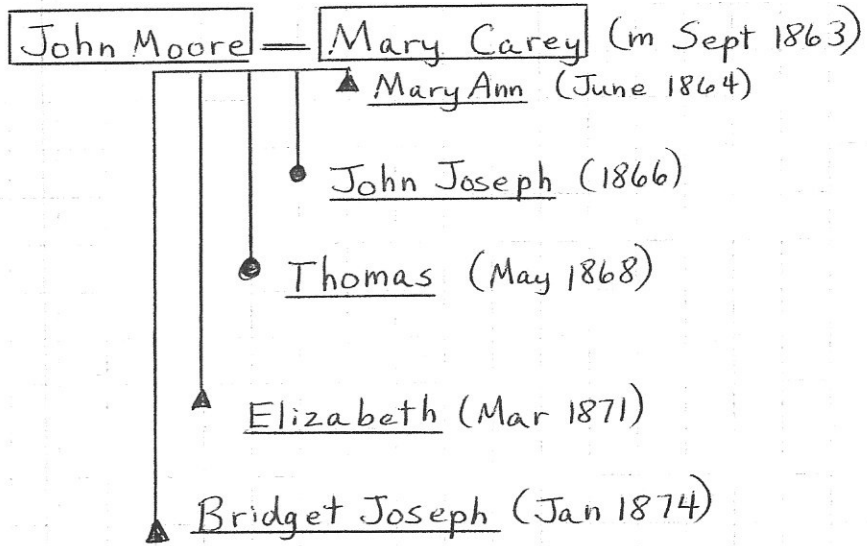 John Moore = Mary Carey (m Sept 1863)
Mary Ann (June 1864)
John Joseph (1866)
Thomas (May 1868)
Elizabeth (Mar 1871)
Bridget Joseph (Jan 1874)